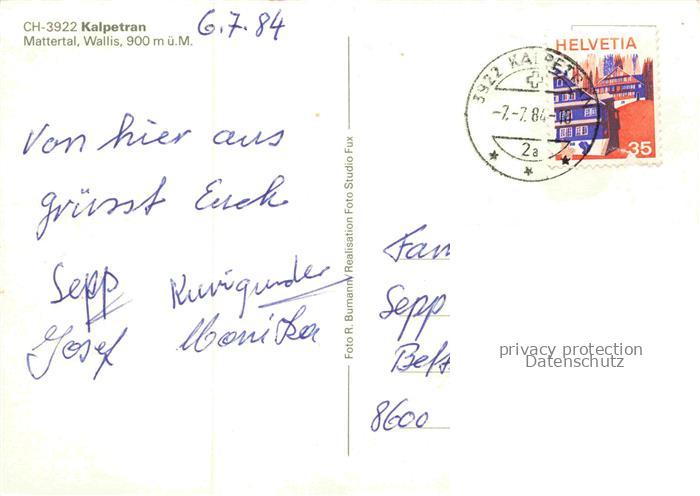 CH-3922 Kalpetran
Mattertal, Wallis, 900 m ü.M.
6.7.84
Von hier aus
grüsst Euch
Sepp Kunigunder
Josef Monika
Foto R. Bumann / Realisation Foto Studio Fux
3922 KALPETRAN
-7.-7.84-18
2a
HELVETIA
35
Fam
Sepp
8600
privacy protection
Datenschutz